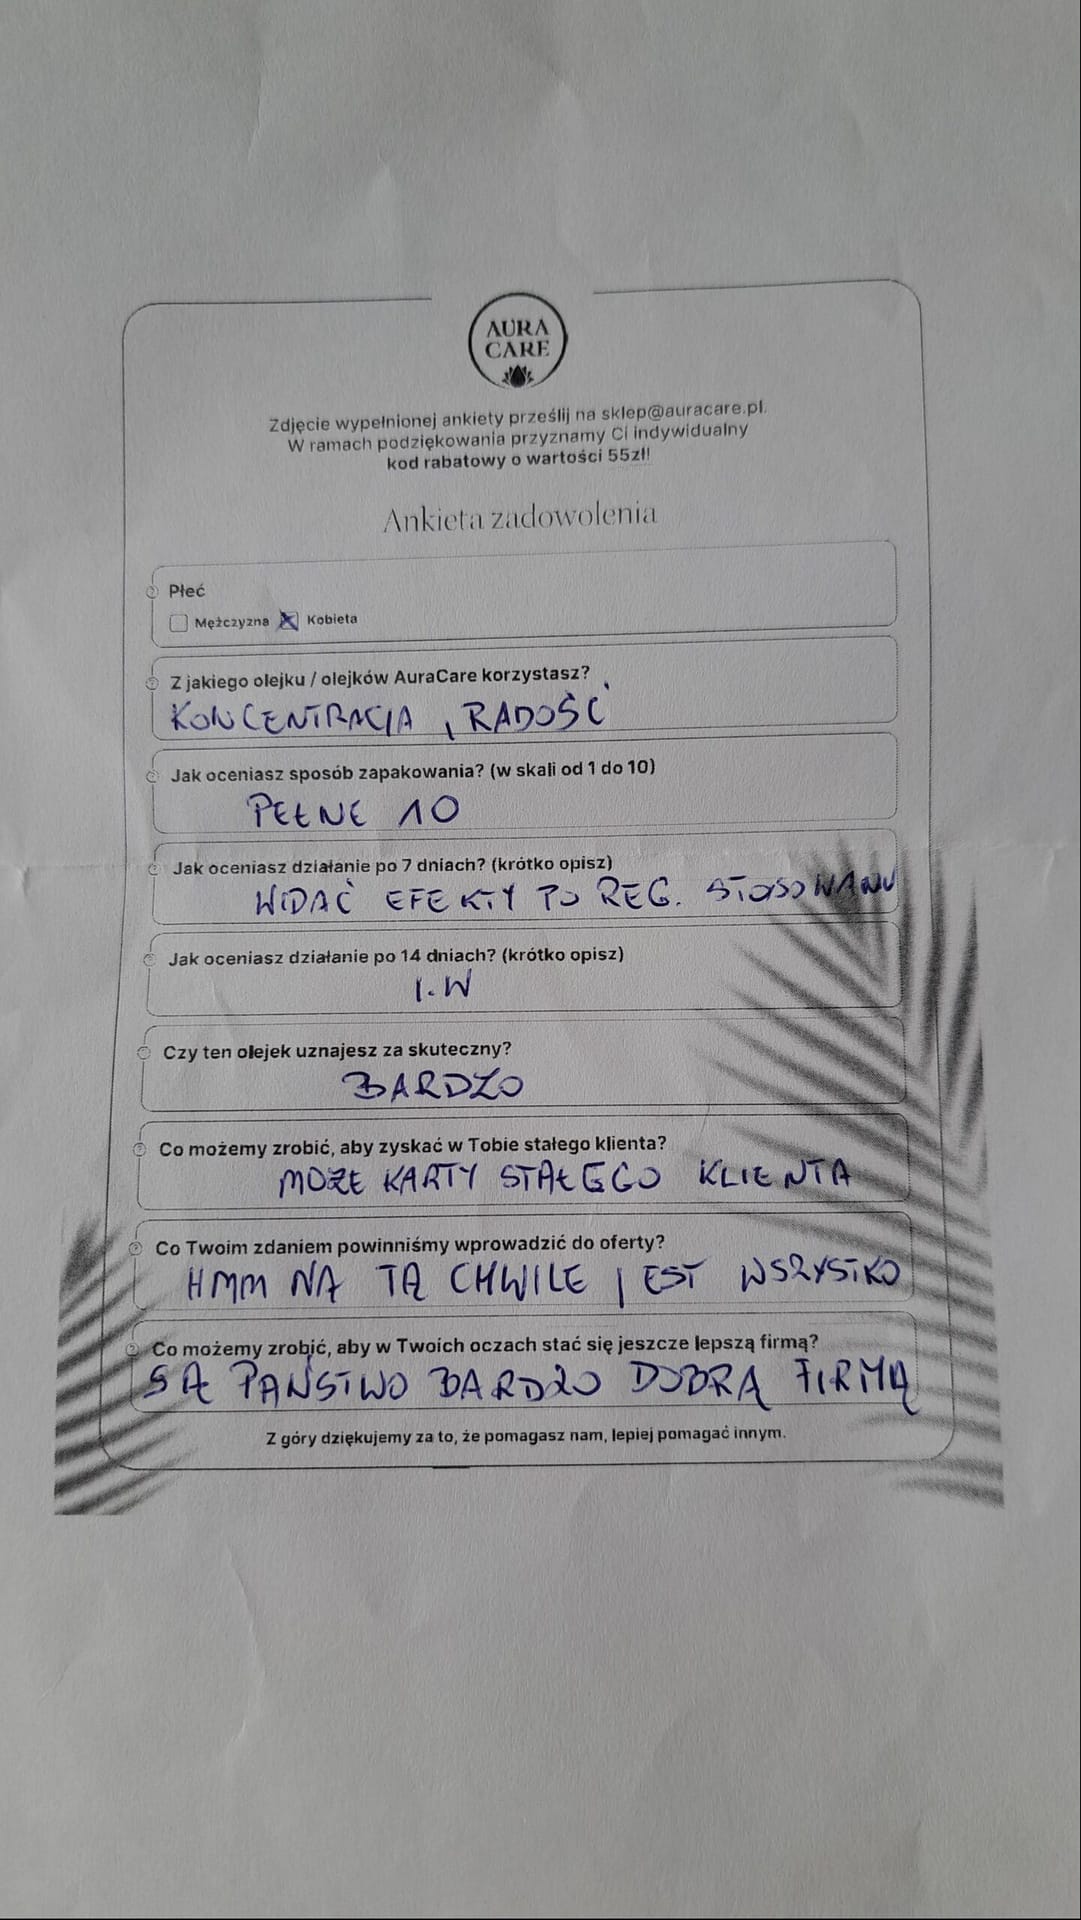 AURA
CARE
Zdjęcie wypełnionej ankiety prześlij na sklep@auracare.pl.
W ramach podziękowania przyznamy Ci indywidualny
kod rabatowy o wartości 55zł!
Ankieta zadowolenia
Płeć
Mężczyzna Kobieta
Z jakiego olejku / olejków AuraCare korzystasz?
KONCENTRACJA , RADOŚĆ
Jak oceniasz sposób zapakowania? (w skali od 1 do 10)
PEŁNE 10
Jak oceniasz działanie po 7 dniach? (krótko opisz)
WIDAĆ EFEKTY PO REG. STOSOWANIU
Jak oceniasz działanie po 14 dniach? (krótko opisz)
I.W
Czy ten olejek uznajesz za skuteczny?
BARDZO
Co możemy zrobić, aby zyskać w Tobie stałego klienta?
MOŻE KARTY STAŁEGO KLIENTA
Co Twoim zdaniem powinniśmy wprowadzić do oferty?
HMM NA TĄ CHWILE JEST WSZYSTKO
Co możemy zrobić, aby w Twoich oczach stać się jeszcze lepszą firmą?
SĄ PAŃSTWO BARDZO DOBRĄ FIRMĄ
Z góry dziękujemy za to, że pomagasz nam, lepiej pomagać innym.